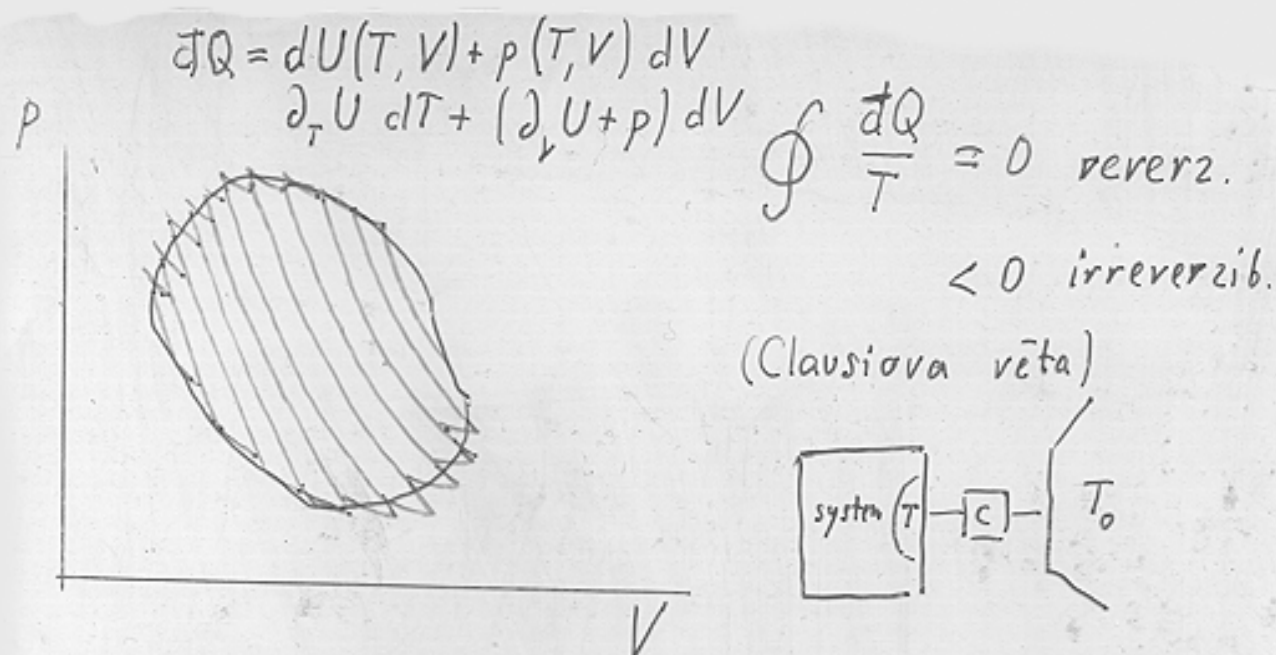 đQ = dU(T, V) + p(T, V) dV
∂_T U dT + (∂_V U + p) dV
p
∮ đQ/T = 0 reverz.
< 0 irreverzib.
(Clausiova věta)
system T C T₀
V